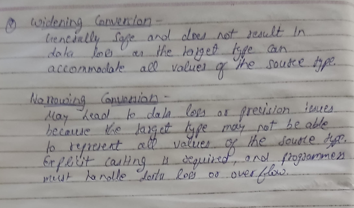 Widening Conversion -
Generally Safe and does not result in
data loss as the target type can
accommodate all values of the source type.
Narrowing Conversion -
May lead to data loss or precision issues
because the target type may not be able
to represent all values of the source type.
Explicit casting is required, and programmers
must handle data loss or overflow.